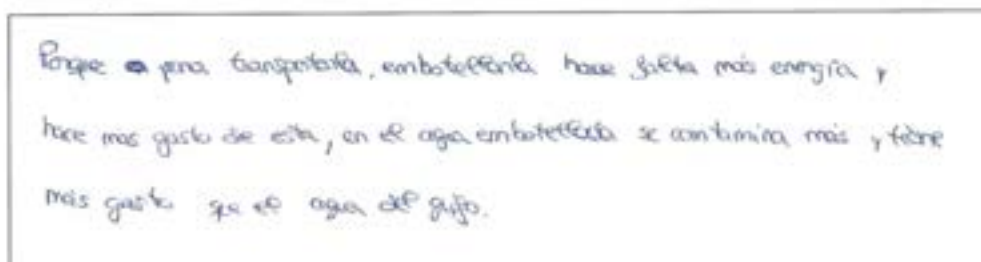 Porque para transportarla, embotellarla hace falta más energía y
hace mas gasto de esta, en el agua embotellada se contamina más y tiene
más gasto que el agua del grifo.